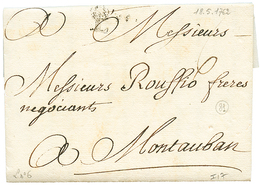 18.5.1762
A Messieurs
Messieurs Rouffio freres
negociants
A Montauban